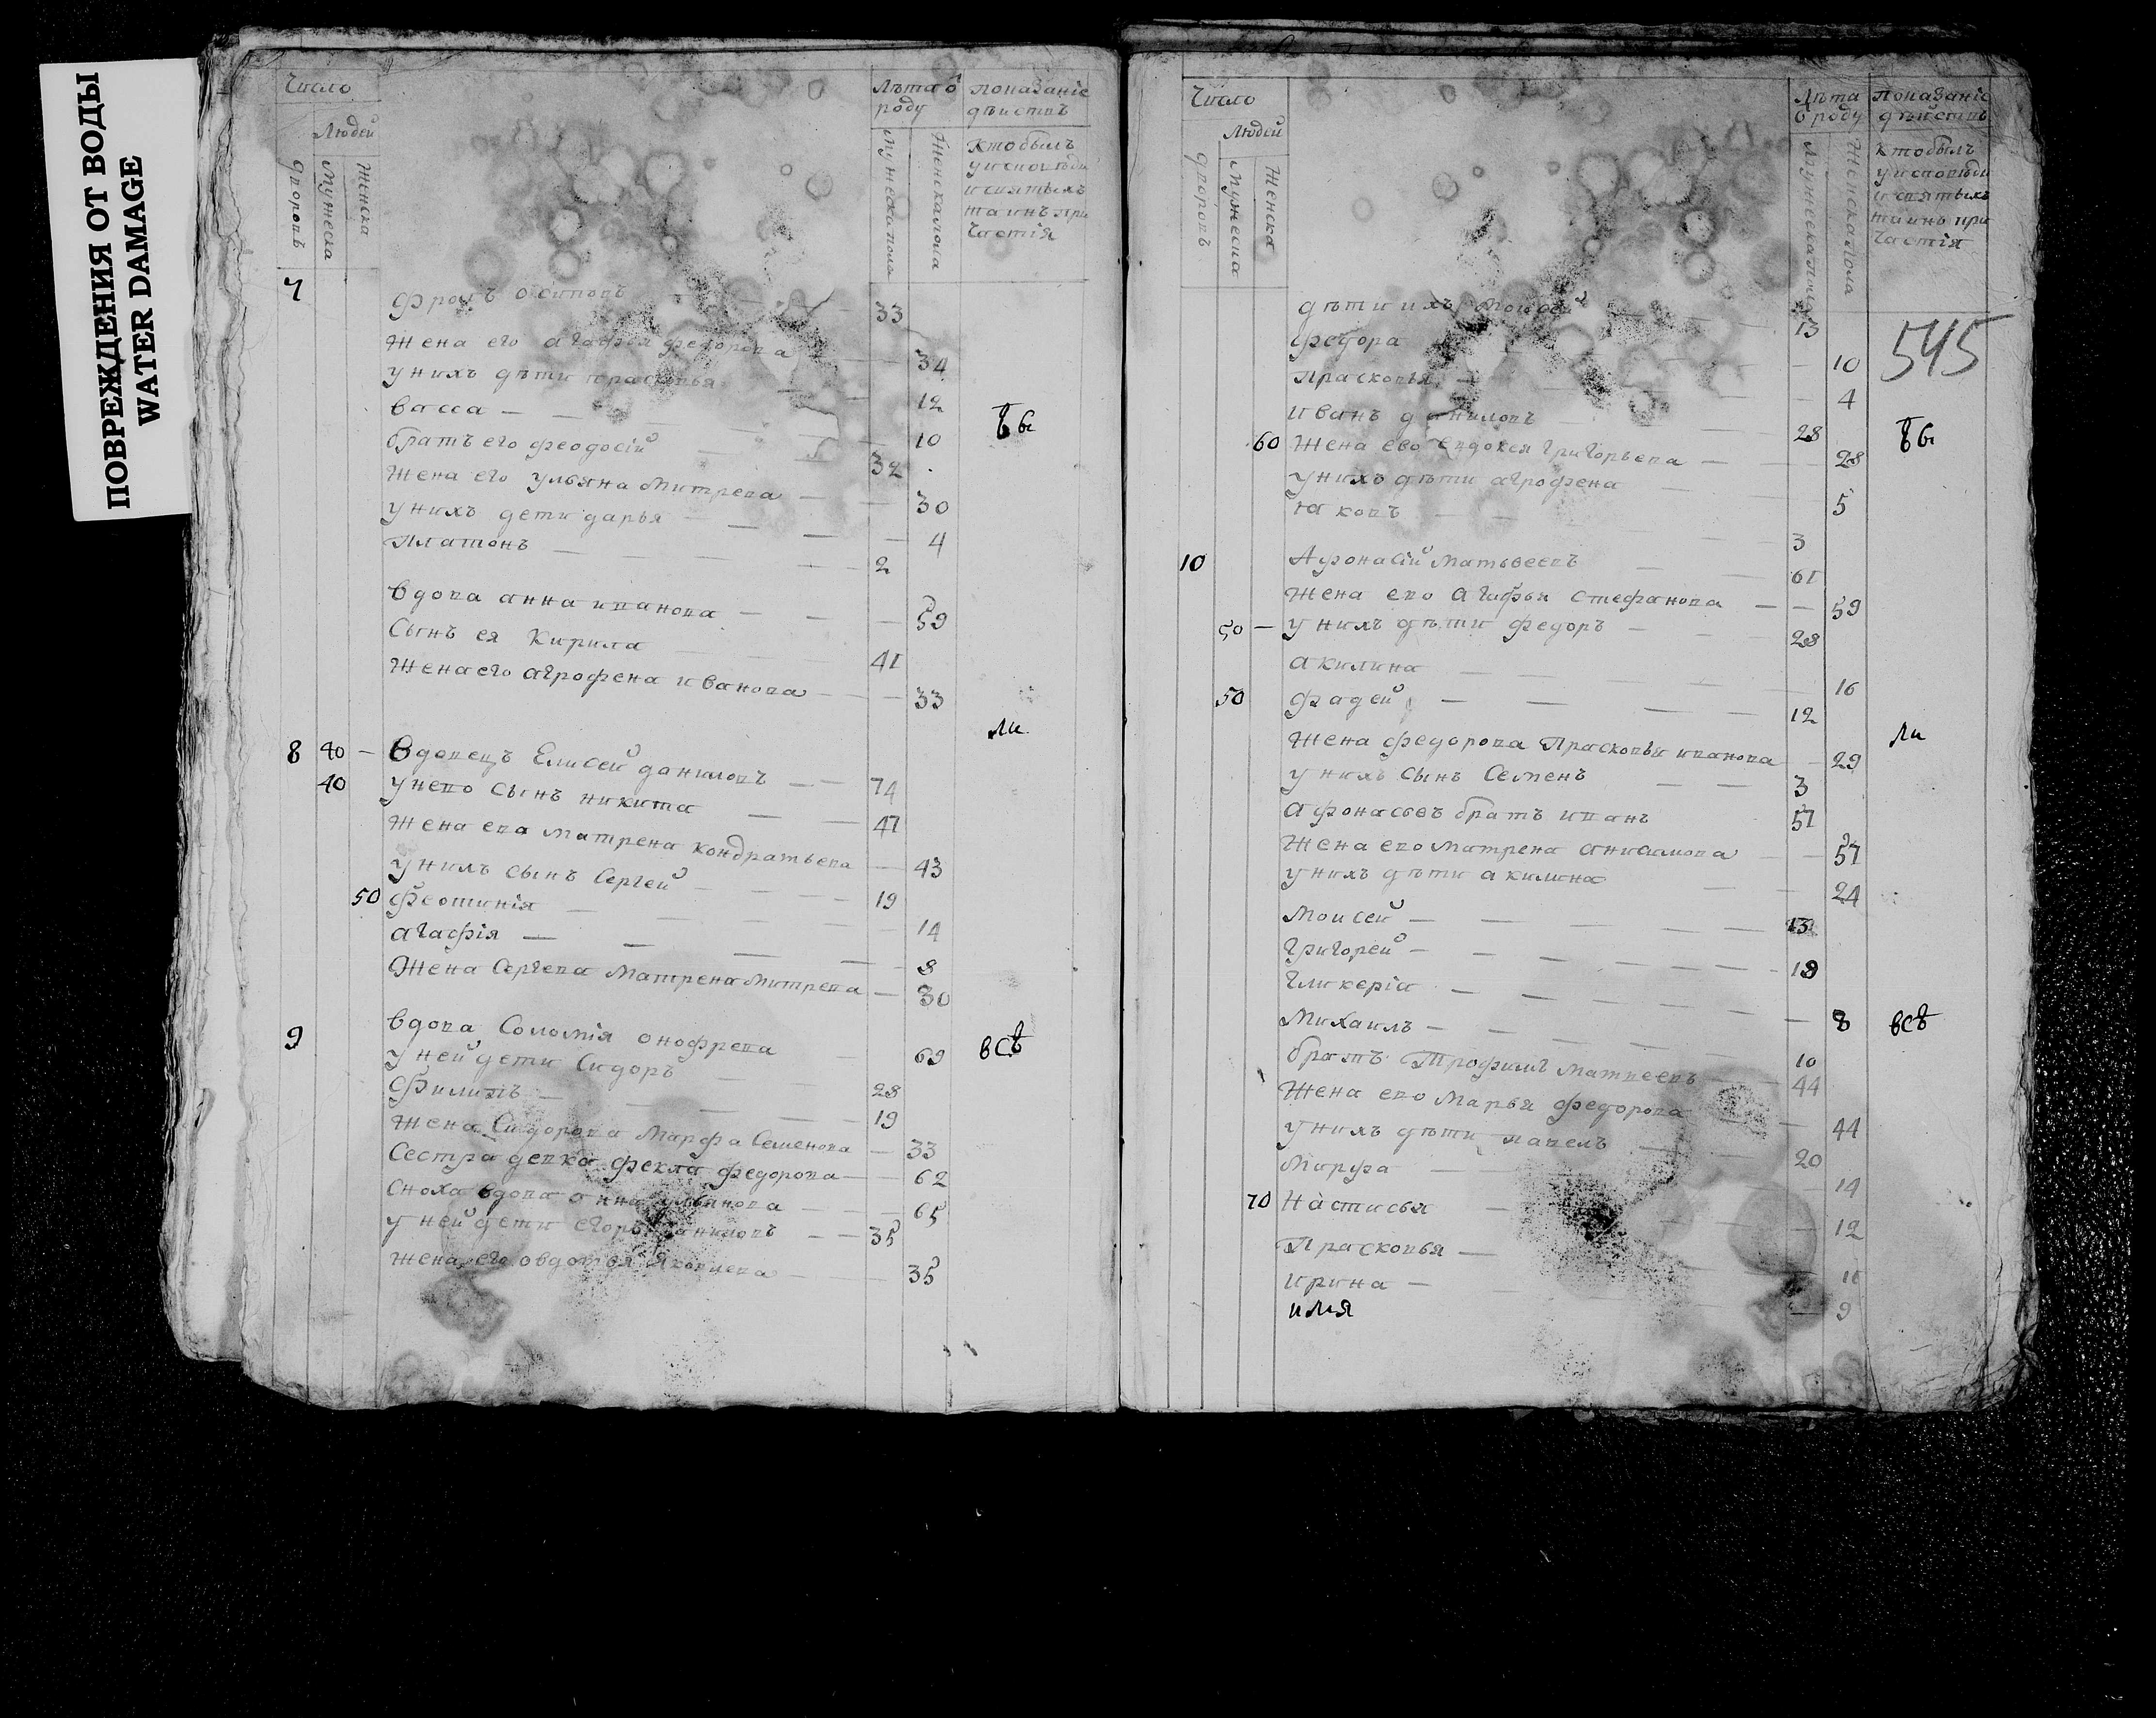 ПОВРЕЖДЕНИЯ ОТ ВОДЫ
WATER DAMAGE
Число
Людей
дворовъ
мужеска
женска
Лѣта о
роду
мужеска пола
женска пола
показаніе
дѣиствъ
кто былъ
у исповѣди
и святыхъ
таинъ при
частія
7
фролъ осиповъ 33
жена его агафья федорова 34
у нихъ дѣти прасковья 12
васса — 10
ѣ вы
братъ его феодосій 32
жена его ульяна митрева — 30
у нихъ дети дарья — 4
платонъ — 2
вдова анна иванова — 59
сынъ ея кирила 41
жена его агрофена иванова — 33
ли
8 40 — вдовецъ Елисей даниловъ — 74
40 у него сынъ никита — 47
жена ево матрена кондратьева — 43
у нихъ сынъ Сергей — 19
50 феотинія — 14
агафія — 8
жена Сергева матрена митрева — 30
9 вдова Соломія онофрева 69
всѣ
у ней дети Сидоръ — 28
филипъ — 19
жена Сидорова марфа Семенова — 33
Сестра девка фекла федорова — 62
сноха вдова анна ульянова — 65
у ней дети егоръ даниловъ — 35
жена его овдотья яковлева — 35
Число
Людей
дворовъ
мужеска
женска
Лѣта
о роду
мужеска пола
женска пола
показаніе
дѣиствъ
кто былъ
у исповѣди
и святыхъ
таинъ при
частія
545
дѣти ихъ моисей — 13
федора — 10
прасковья — 4
иванъ даниловъ — 28
ѣ вы
60 жена ево евдокея григорьева — 28
у нихъ дѣти агрофена 5
яковъ — 3
10 Афонасій матвеевъ — 61
жена ево агафья стефанова — 59
50 — у нихъ дѣти федоръ — 28
акилина — 16
50 фадей — 12
ли
жена федорова Прасковья иванова — 29
у нихъ сынъ Семенъ — 3
афонасьевъ братъ иванъ 51
жена ево матрена анисимова — 57
у нихъ дѣти акилина — 24
Моисей — 13
григорей — 18
гликерія — 8
всѣ
Михаилъ — 10
братъ Трофимъ матвеевъ — 44
жена ево марья федорова — 44
у нихъ дѣти павелъ — 20
марфа — 14
70 Настасья — 12
Прасковья — 11
ирина — 9
имя